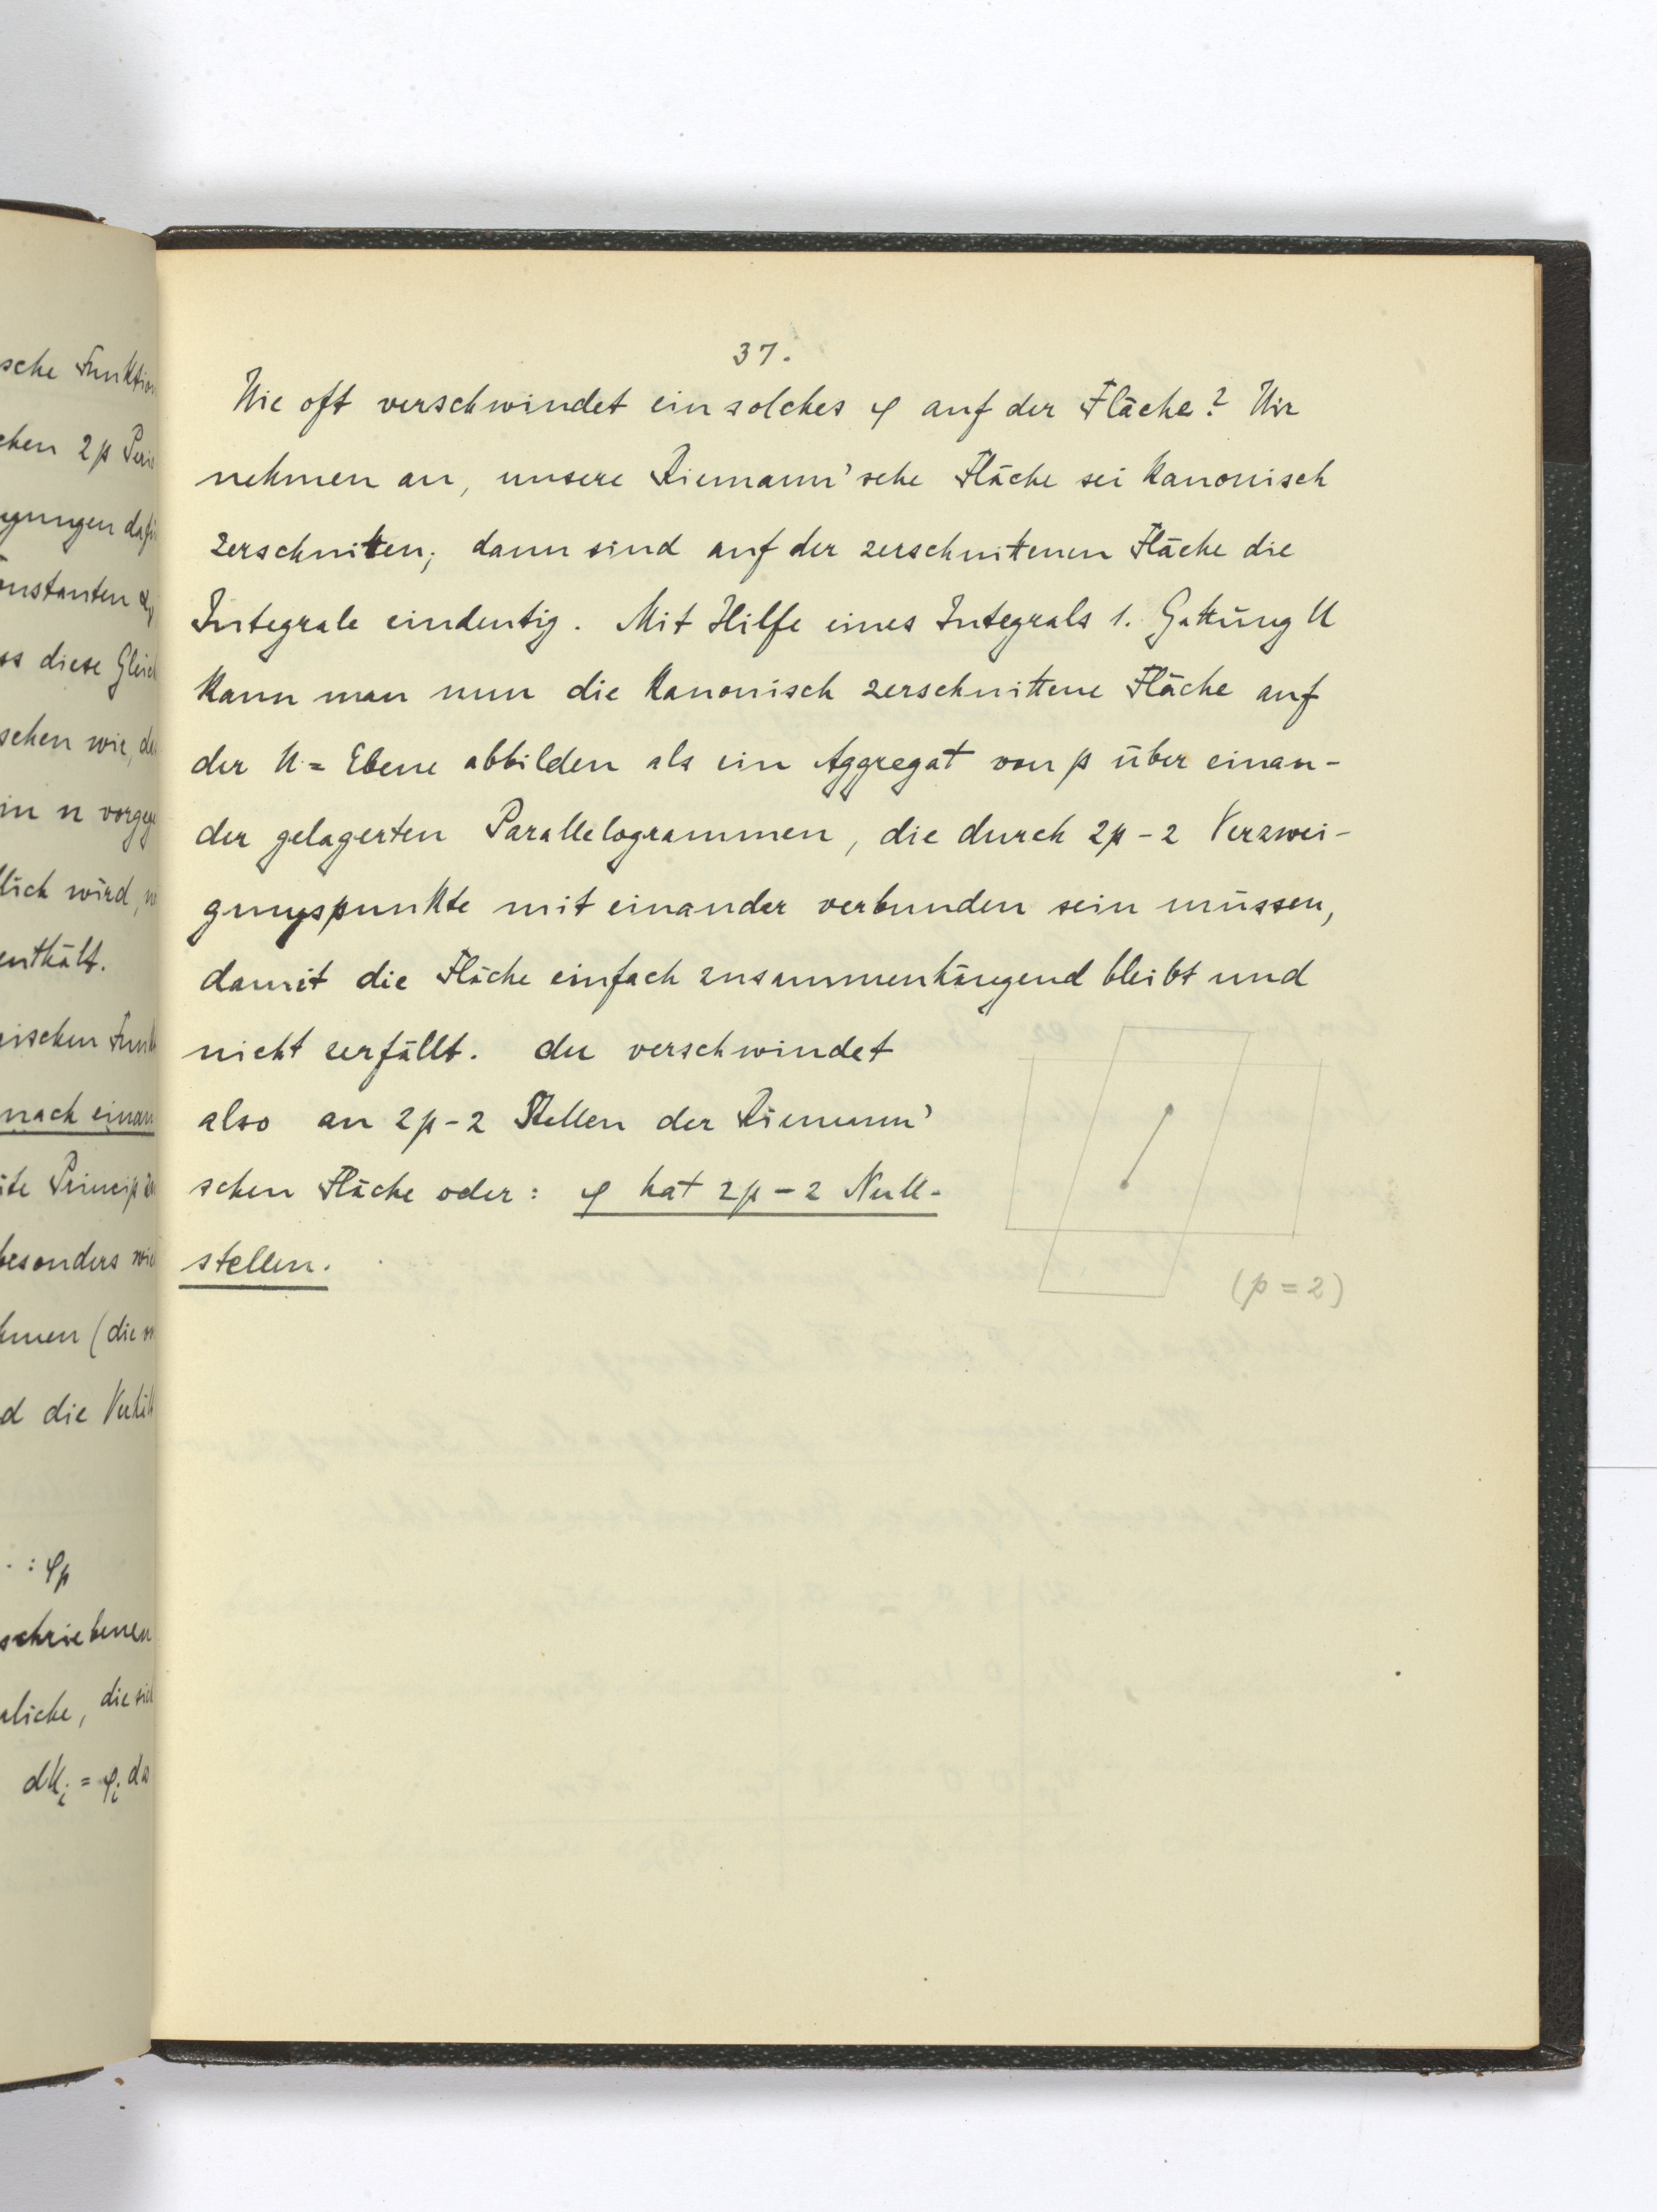 sche Funktion
chen 2p Peri
gungen dafü
onstanten α
ss diese Gleich
schen wie, de
in n vorgeg
lich wird, w
enthält.
gischen Funk
nach einan
ite Princip
besonders wie
hmen (die
d die Verhält
. : φp
schriebenen
rliche, die sich
dUi = φi ds
37.
Wie oft verschwindet ein solches φ auf der Fläche? Wir
nehmen an, unsere Riemann'sche Fläche sei kanonisch
zerschnitten; dann sind auf der zerschnittenen Fläche die
Integrale eindeutig. Mit Hilfe eines Integrals 1. Gattung U
kann man nun die kanonisch zerschnittene Fläche auf
der U = Ebene abbilden als ein Aggregat von p über einan-
der gelagerten Parallelogrammen, die durch 2p - 2 Verzwei-
gungspunkte mit einander verbunden sein müssen,
damit die Fläche einfach zusammenhängend bleibt und
nicht zerfällt. du verschwindet
also an 2p - 2 Stellen der Riemann'
schen Fläche oder: φ hat 2p - 2 Null-
stellen.
(p = 2)